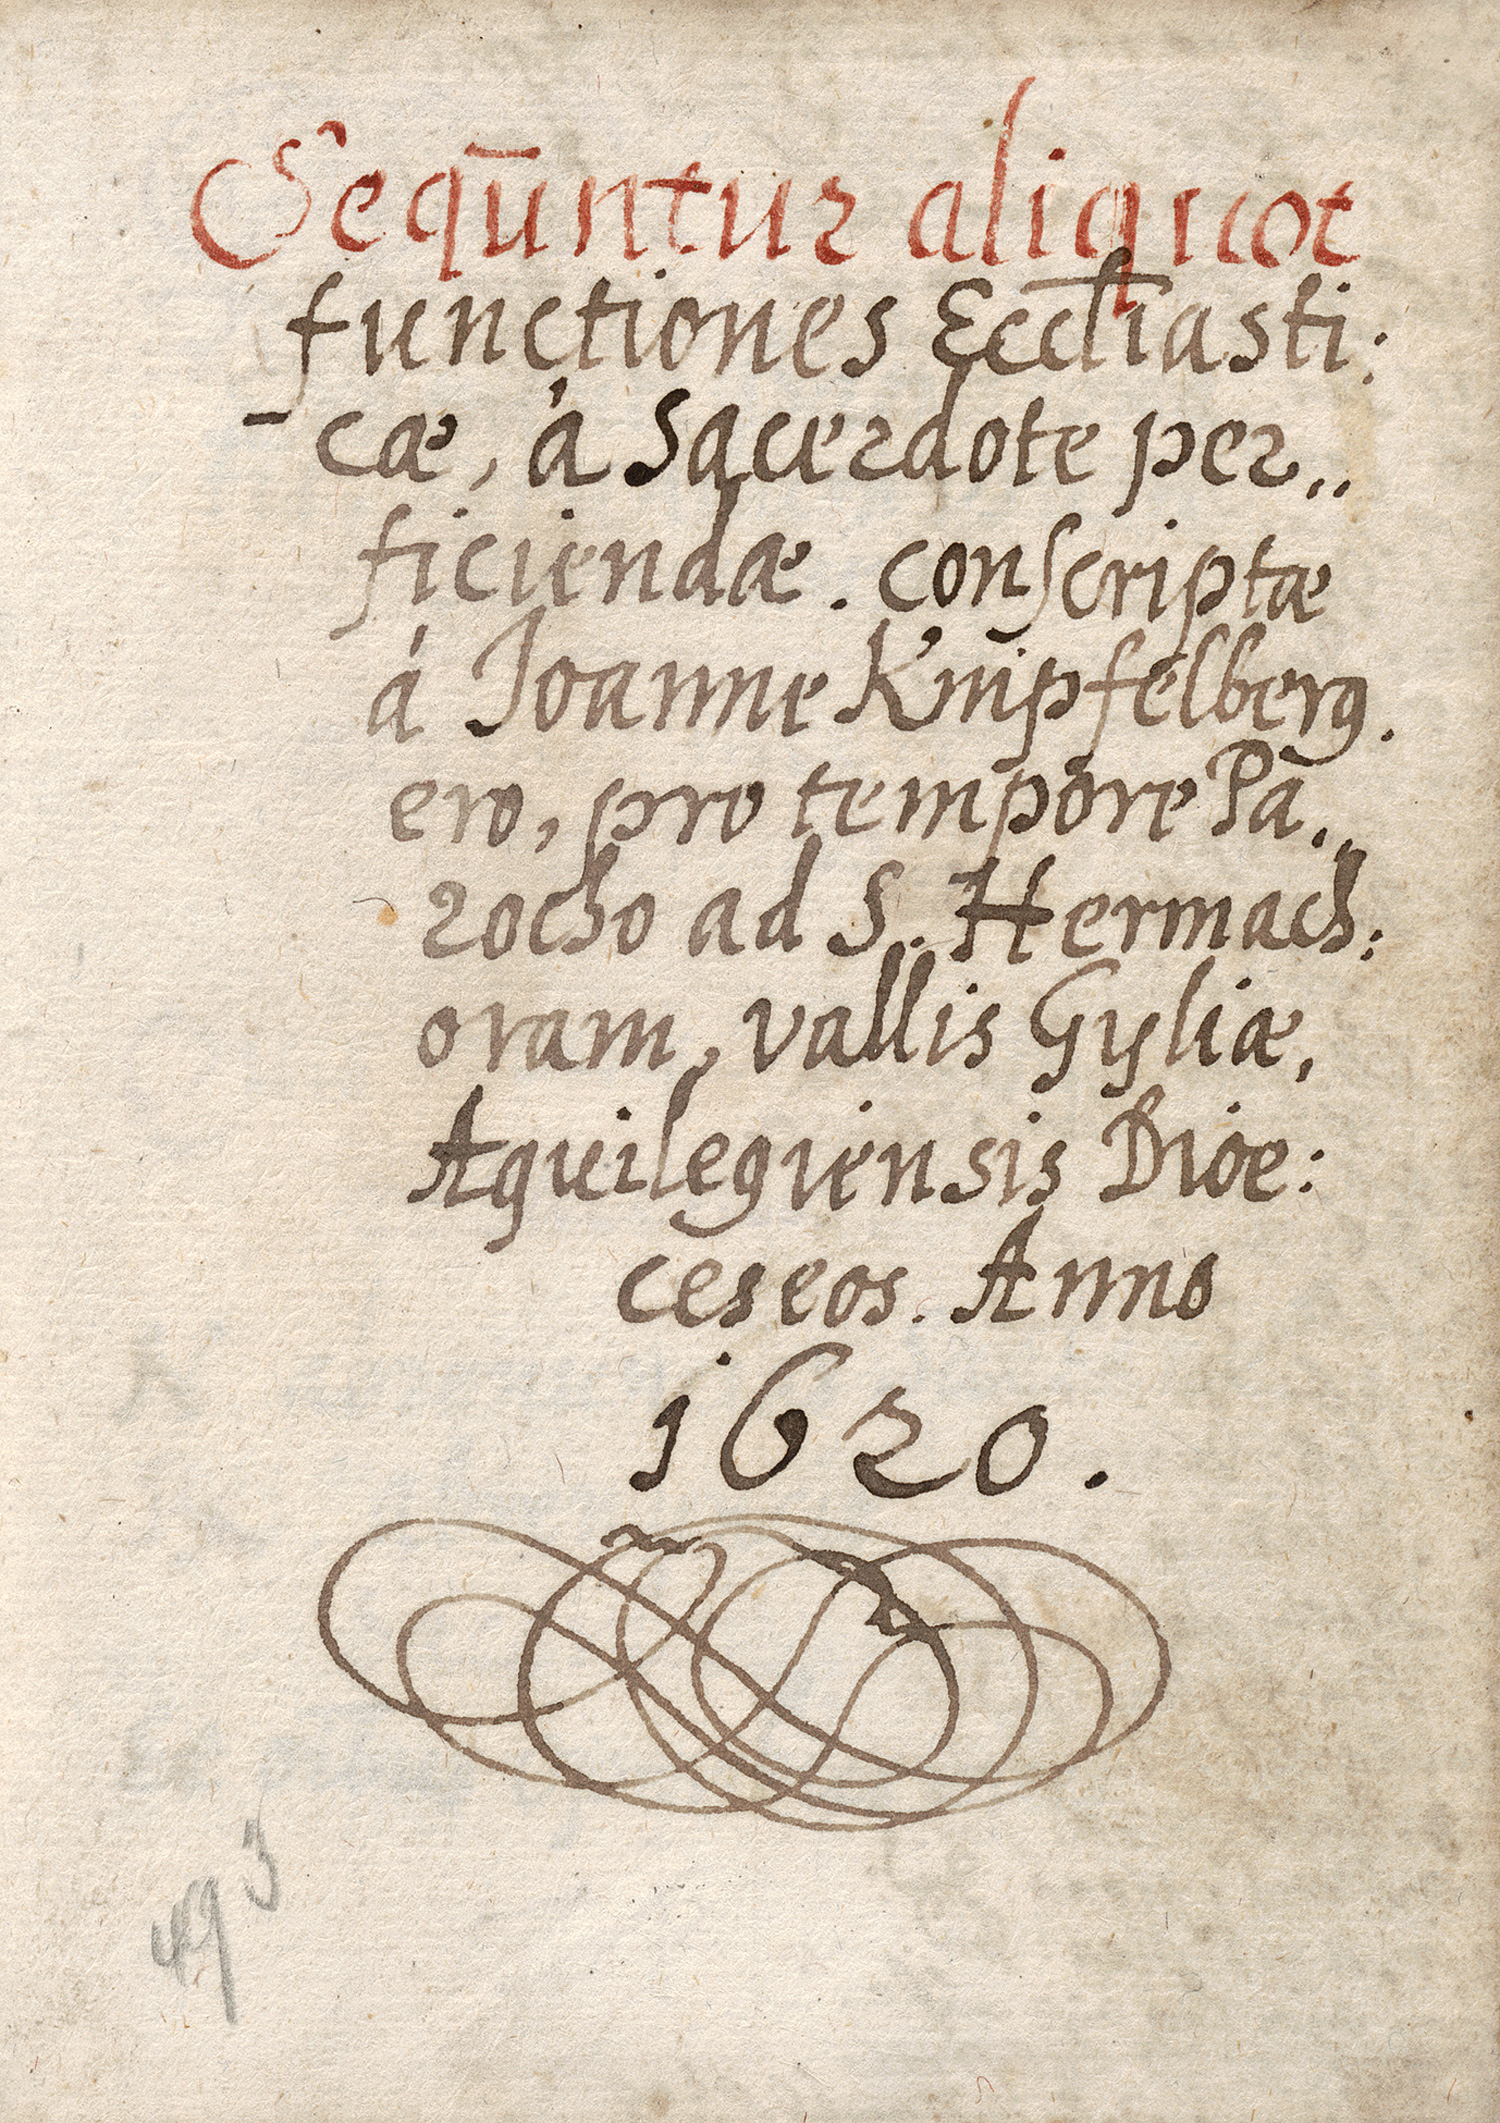 Seqūntur aliquot
functiones Eccl̄iasti:
cæ, à Sacerdote per..
ficiendæ. conscriptæ
á Joanne Knipfelberg.
ero, pro tempore Pa..
rocho ad S. Hermach:
oram, vallis Gyliæ,
Aquilegiensis Dioe:
ceseos. Anno
1620.
493